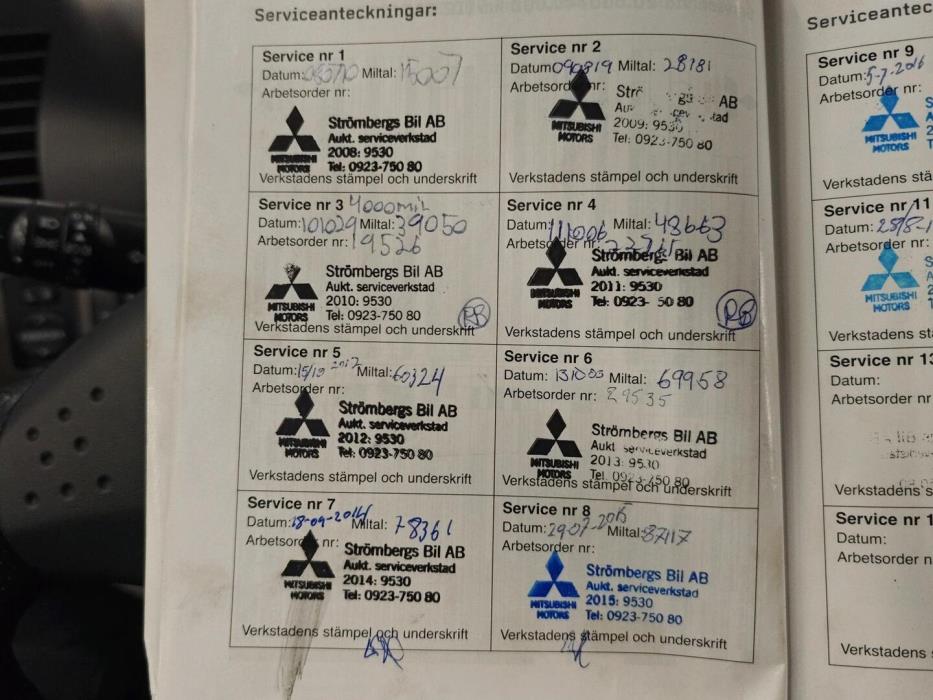 Serviceanteckningar:
Service nr 1
Datum: Miltal: 15007
Arbetsorder nr:
MITSUBISHI MOTORS
Strömbergs Bil AB
Aukt. serviceverkstad
2008: 9530
Tel: 0923-750 80
Verkstadens stämpel och underskrift
Service nr 2
Datum: 090819 Miltal: 28181
Arbetsorder nr:
MITSUBISHI MOTORS
AB
2009: 9530
Tel: 0923-750 80
Verkstadens stämpel och underskrift
Service nr 3 4000mil
Datum: 101029 Miltal: 39050
Arbetsorder nr: 19526
MITSUBISHI MOTORS
Strömbergs Bil AB
Aukt. serviceverkstad
2010: 9530
Tel: 0923-750 80
RB
Verkstadens stämpel och underskrift
Service nr 4
Datum: 111006 Miltal: 48663
Arbetsorder nr:
MITSUBISHI MOTORS
Strömbergs Bil AB
Aukt. serviceverkstad
2011: 9530
Tel: 0923- 50 80
RB
Verkstadens stämpel och underskrift
Service nr 5
Datum: 15/10 2012 Miltal: 60324
Arbetsorder nr:
MITSUBISHI MOTORS
Strömbergs Bil AB
Aukt. serviceverkstad
2012: 9530
Tel: 0923-750 80
Verkstadens stämpel och underskrift
Service nr 6
Datum: Miltal: 69958
Arbetsorder nr: 29535
MITSUBISHI MOTORS
Strömbergs Bil AB
Aukt serviceverkstad
2013: 9530
Tel 0923-750 80
Verkstadens stämpel och underskrift
Service nr 7
Datum: 18-09-2014 Miltal: 78361
Arbetsorder nr:
MITSUBISHI MOTORS
Strömbergs Bil AB
Aukt. serviceverkstad
2014: 9530
Tel: 0923-750 80
Verkstadens stämpel och underskrift
Service nr 8
Datum: 29-07-2015 Miltal: 87117
Arbetsorder nr:
MITSUBISHI MOTORS
Strömbergs Bil AB
Aukt. serviceverkstad
2015: 9530
Tel: 0923-750 80
Verkstadens stämpel och underskrift
Serviceantec
Service nr 9
Datum: 5-7-2016
Arbetsorder nr:
MITSUBISHI MOTORS
Verkstadens stä
Service nr 11
Datum: 25/8-1
Arbetsorder nr
MITSUBISHI MOTORS
Verkstadens st
Service nr 13
Datum:
Arbetsorder nr
Verkstadens s
Service nr 1
Datum:
Arbetsorder n
Verkstadens